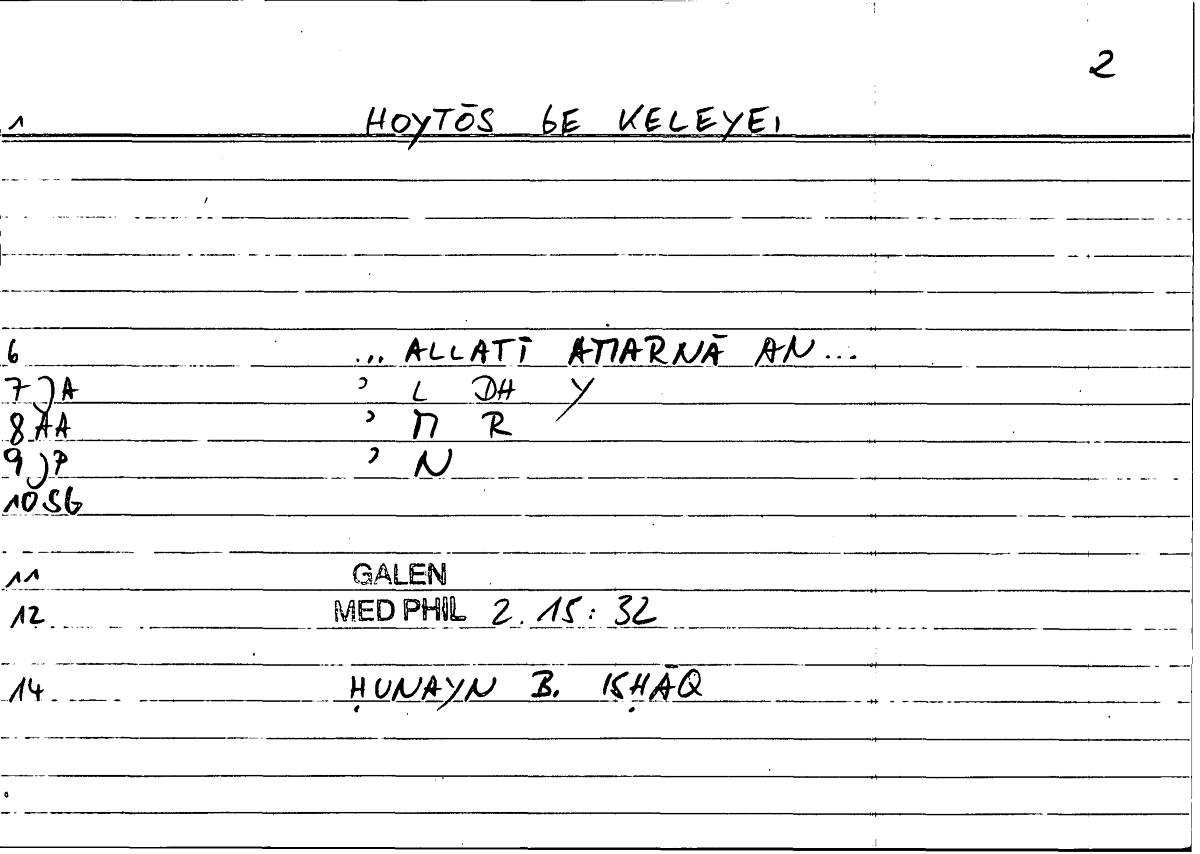 2
1 HOYTŌS GE KELEYEI
6 ... ALLATĪ AMARNĀ AN...
7 )A ʾ L DH Y
8 AA ʾ M R
9 )P ʾ N
10 SG
11 GALEN
12 MED PHIL 2.15:32
14 ḤUNAYN B. ISḤĀQ